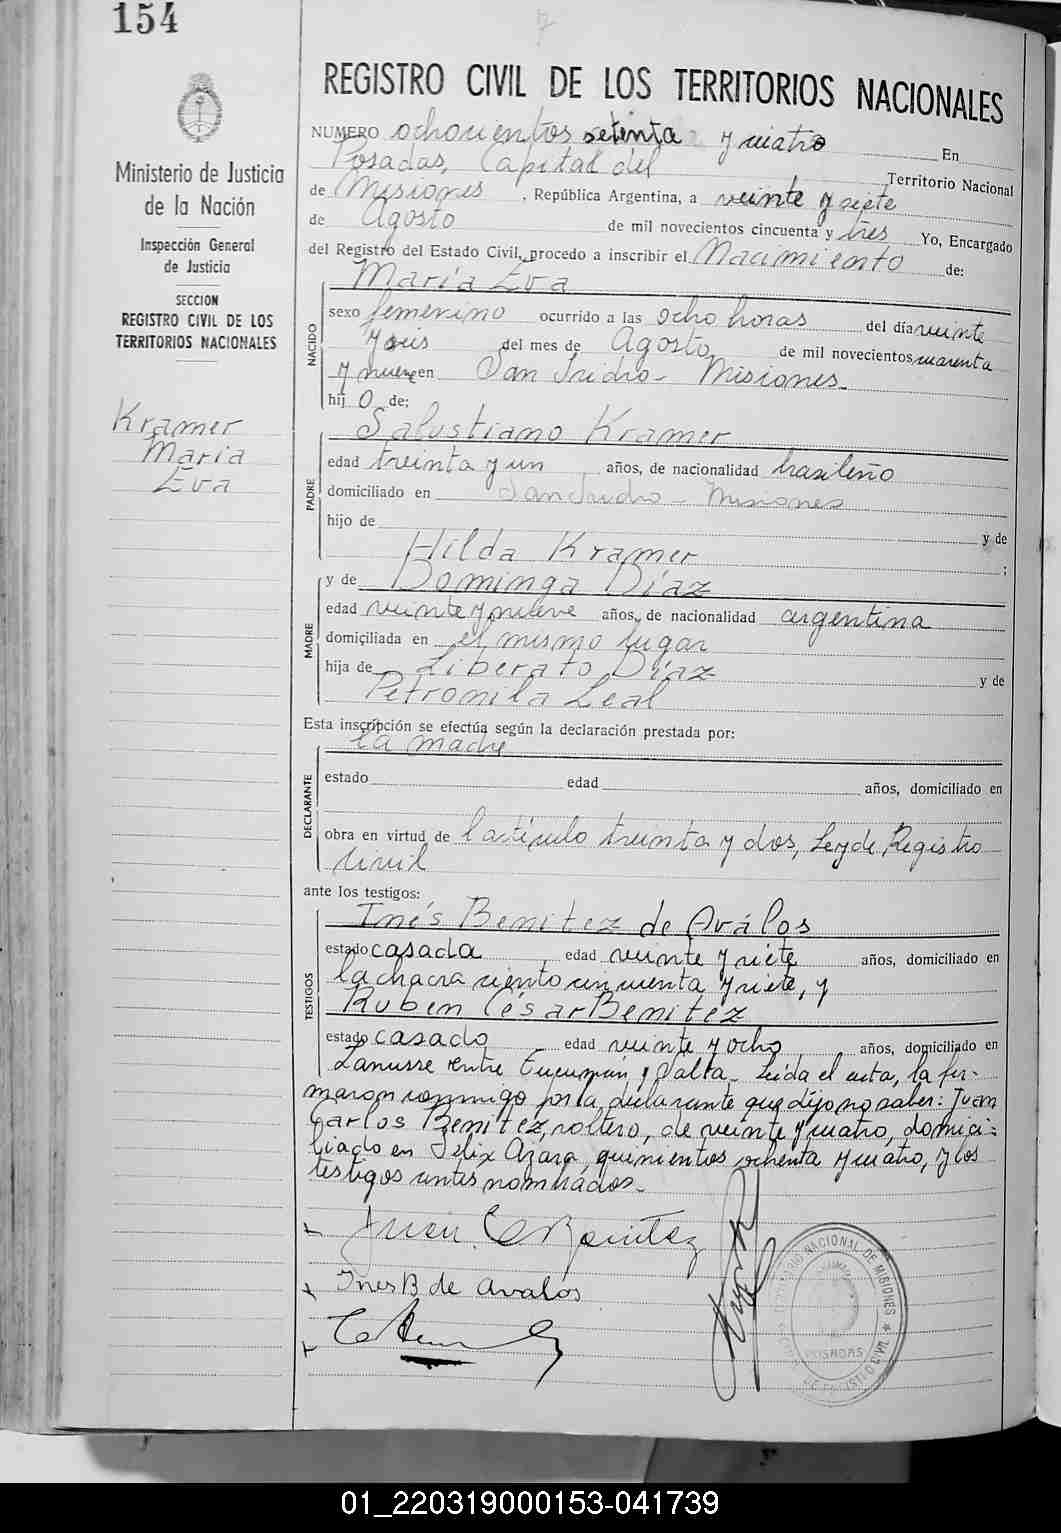 154
REGISTRO CIVIL DE LOS TERRITORIOS NACIONALES
Ministerio de Justicia
de la Nación
Inspección General
de Justicia
SECCION
REGISTRO CIVIL DE LOS
TERRITORIOS NACIONALES
Kramer
Maria
Eva
NUMERO ochocientos setenta y cuatro En
Posadas, Capital del Territorio Nacional
de Misiones, República Argentina, a veinte y siete
de Agosto de mil novecientos cincuenta y tres Yo, Encargado
del Registro del Estado Civil, procedo a inscribir el Nacimiento de:
NACIDO
María Eva
sexo femenino ocurrido a las ocho horas del día veinte
y seis del mes de Agosto de mil novecientos cuarenta
y nueve en San Isidro - Misiones
hij o de:
PADRE
Salustiano Kramer
edad treinta y un años, de nacionalidad brasileño
domiciliado en San Isidro - Misiones
hijo de y de
Hilda Kramer ;
MADRE
y de Dominga Díaz
edad veinte y nueve años, de nacionalidad argentina
domiciliada en el mismo lugar
hija de Liberato Díaz y de
Petronila Leal
Esta inscripción se efectúa según la declaración prestada por:
DECLARANTE
la madre
estado edad años, domiciliado en
obra en virtud de l artículo treinta y dos, Ley de Registro
Civil
ante los testigos:
TESTIGOS
Inés Benitez de Aválos
estado casada edad veinte y siete años, domiciliado en
la chacra ciento cincuenta y siete, y
Ruben César Benitez
estado casado edad veinte y ocho años, domiciliado en
Lanusse entre Tucumán y Salta - Leída el acta, la fir-
maron conmigo por la declarante que dijo no saber: Juan
Carlos Benitez, soltero, de veinte y cuatro, domici-
liado en Félix Azara quinientos ochenta y cuatro, y los
testigos antes nombrados.
Juan C Benitez
Ines B de Avalos
TERRITORIO NACIONAL DE MISIONES
POSADAS
REGISTRO CIVIL
01_220319000153-041739